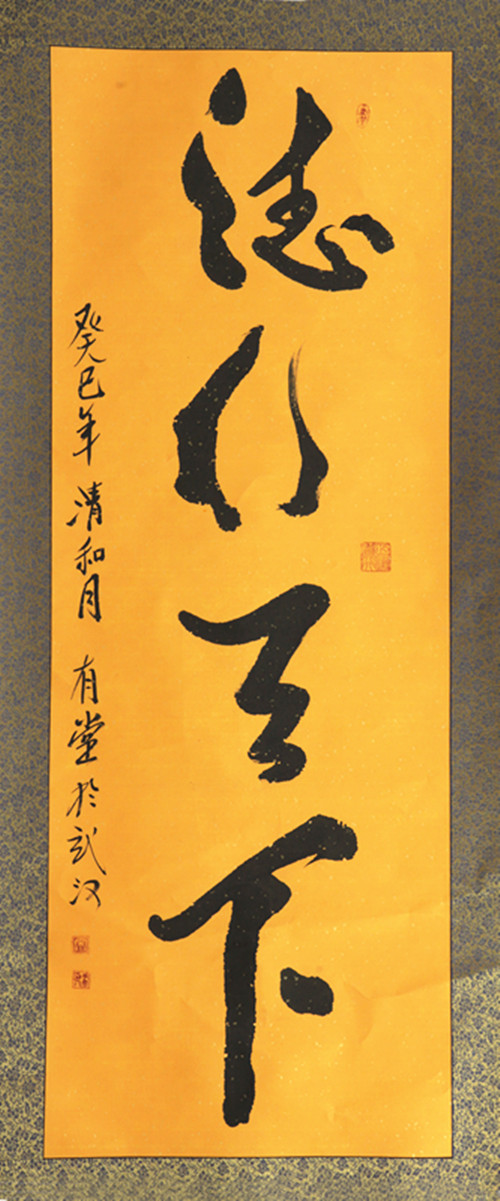 德行天下
癸巳年 清和月 有堂於武汉